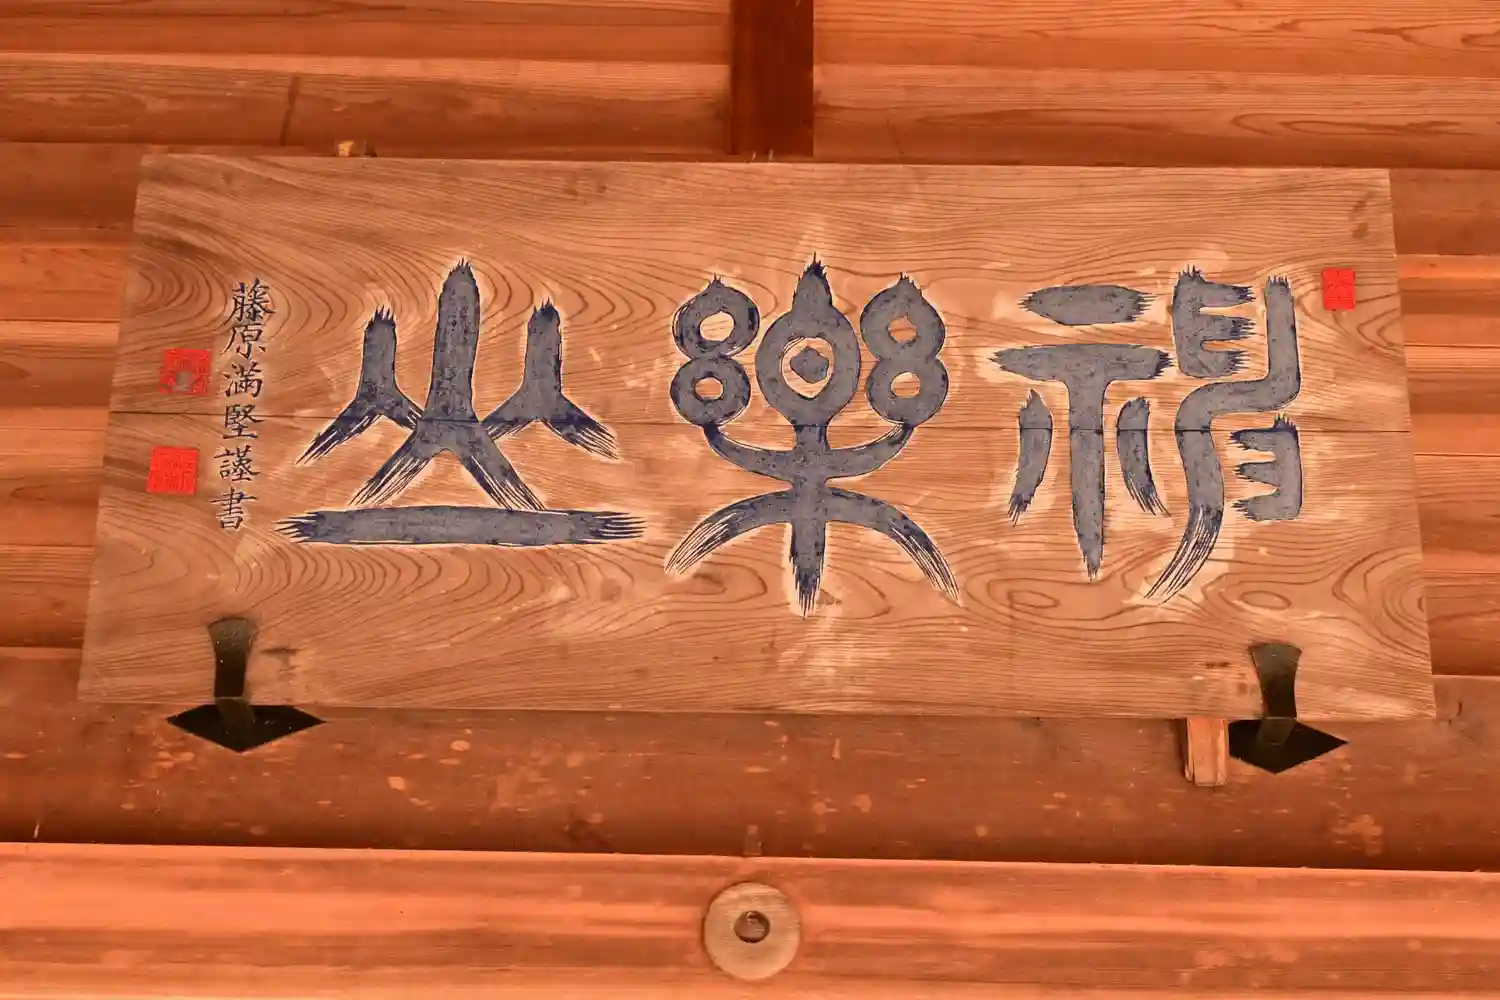 神樂山
藤原満堅謹書